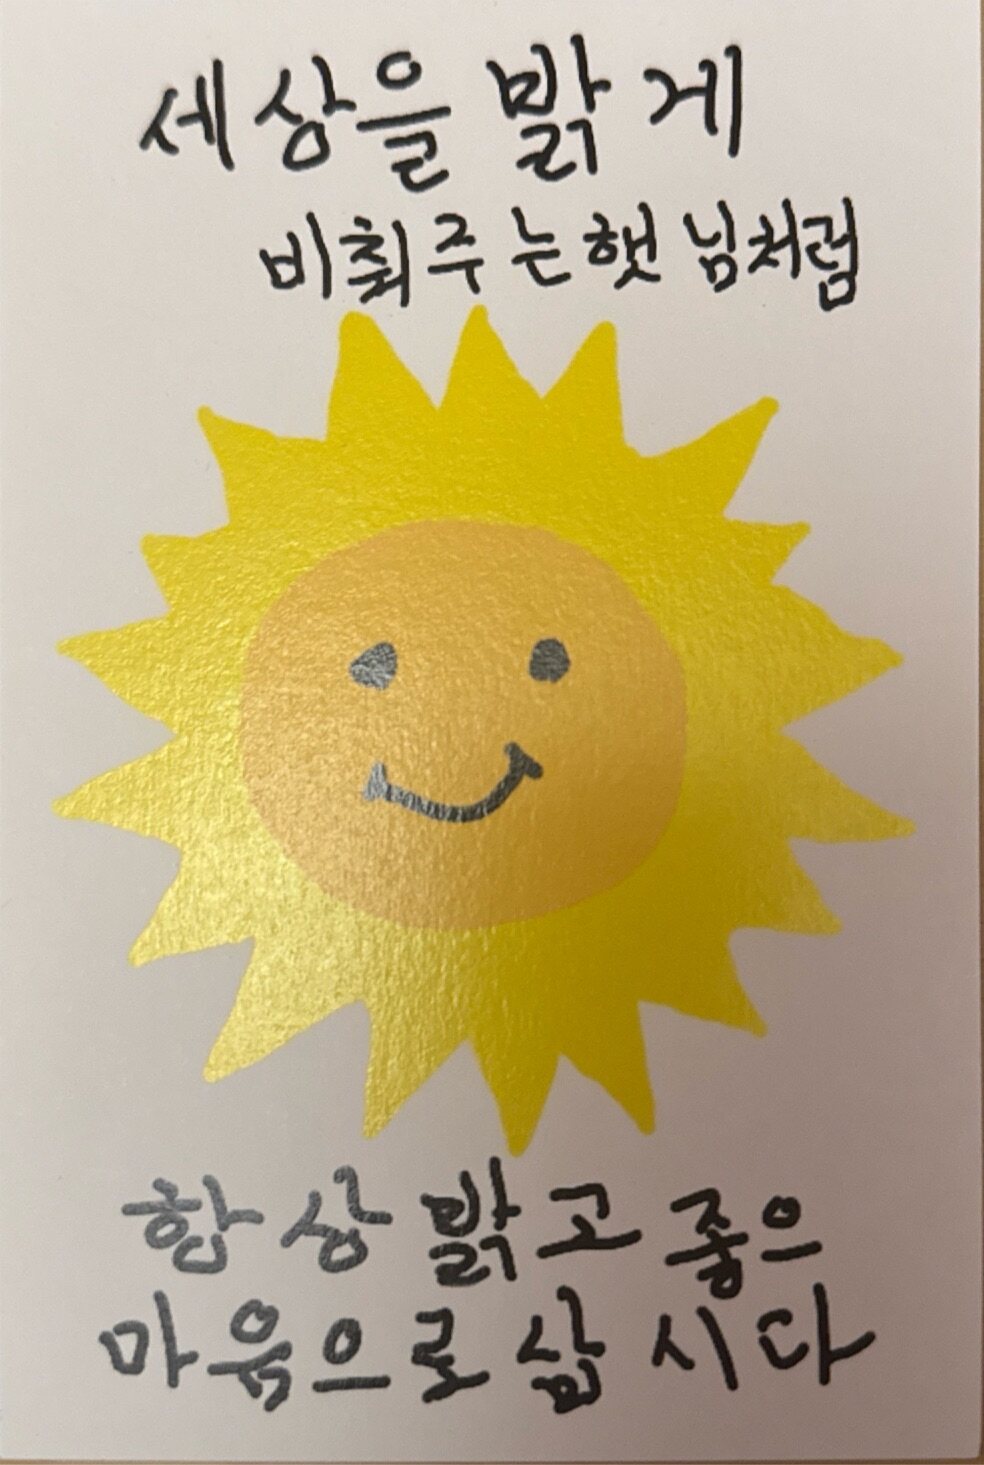 세상을 밝게
비춰주는 햇님처럼
항상 밝고 좋으
마음으로 삽시다